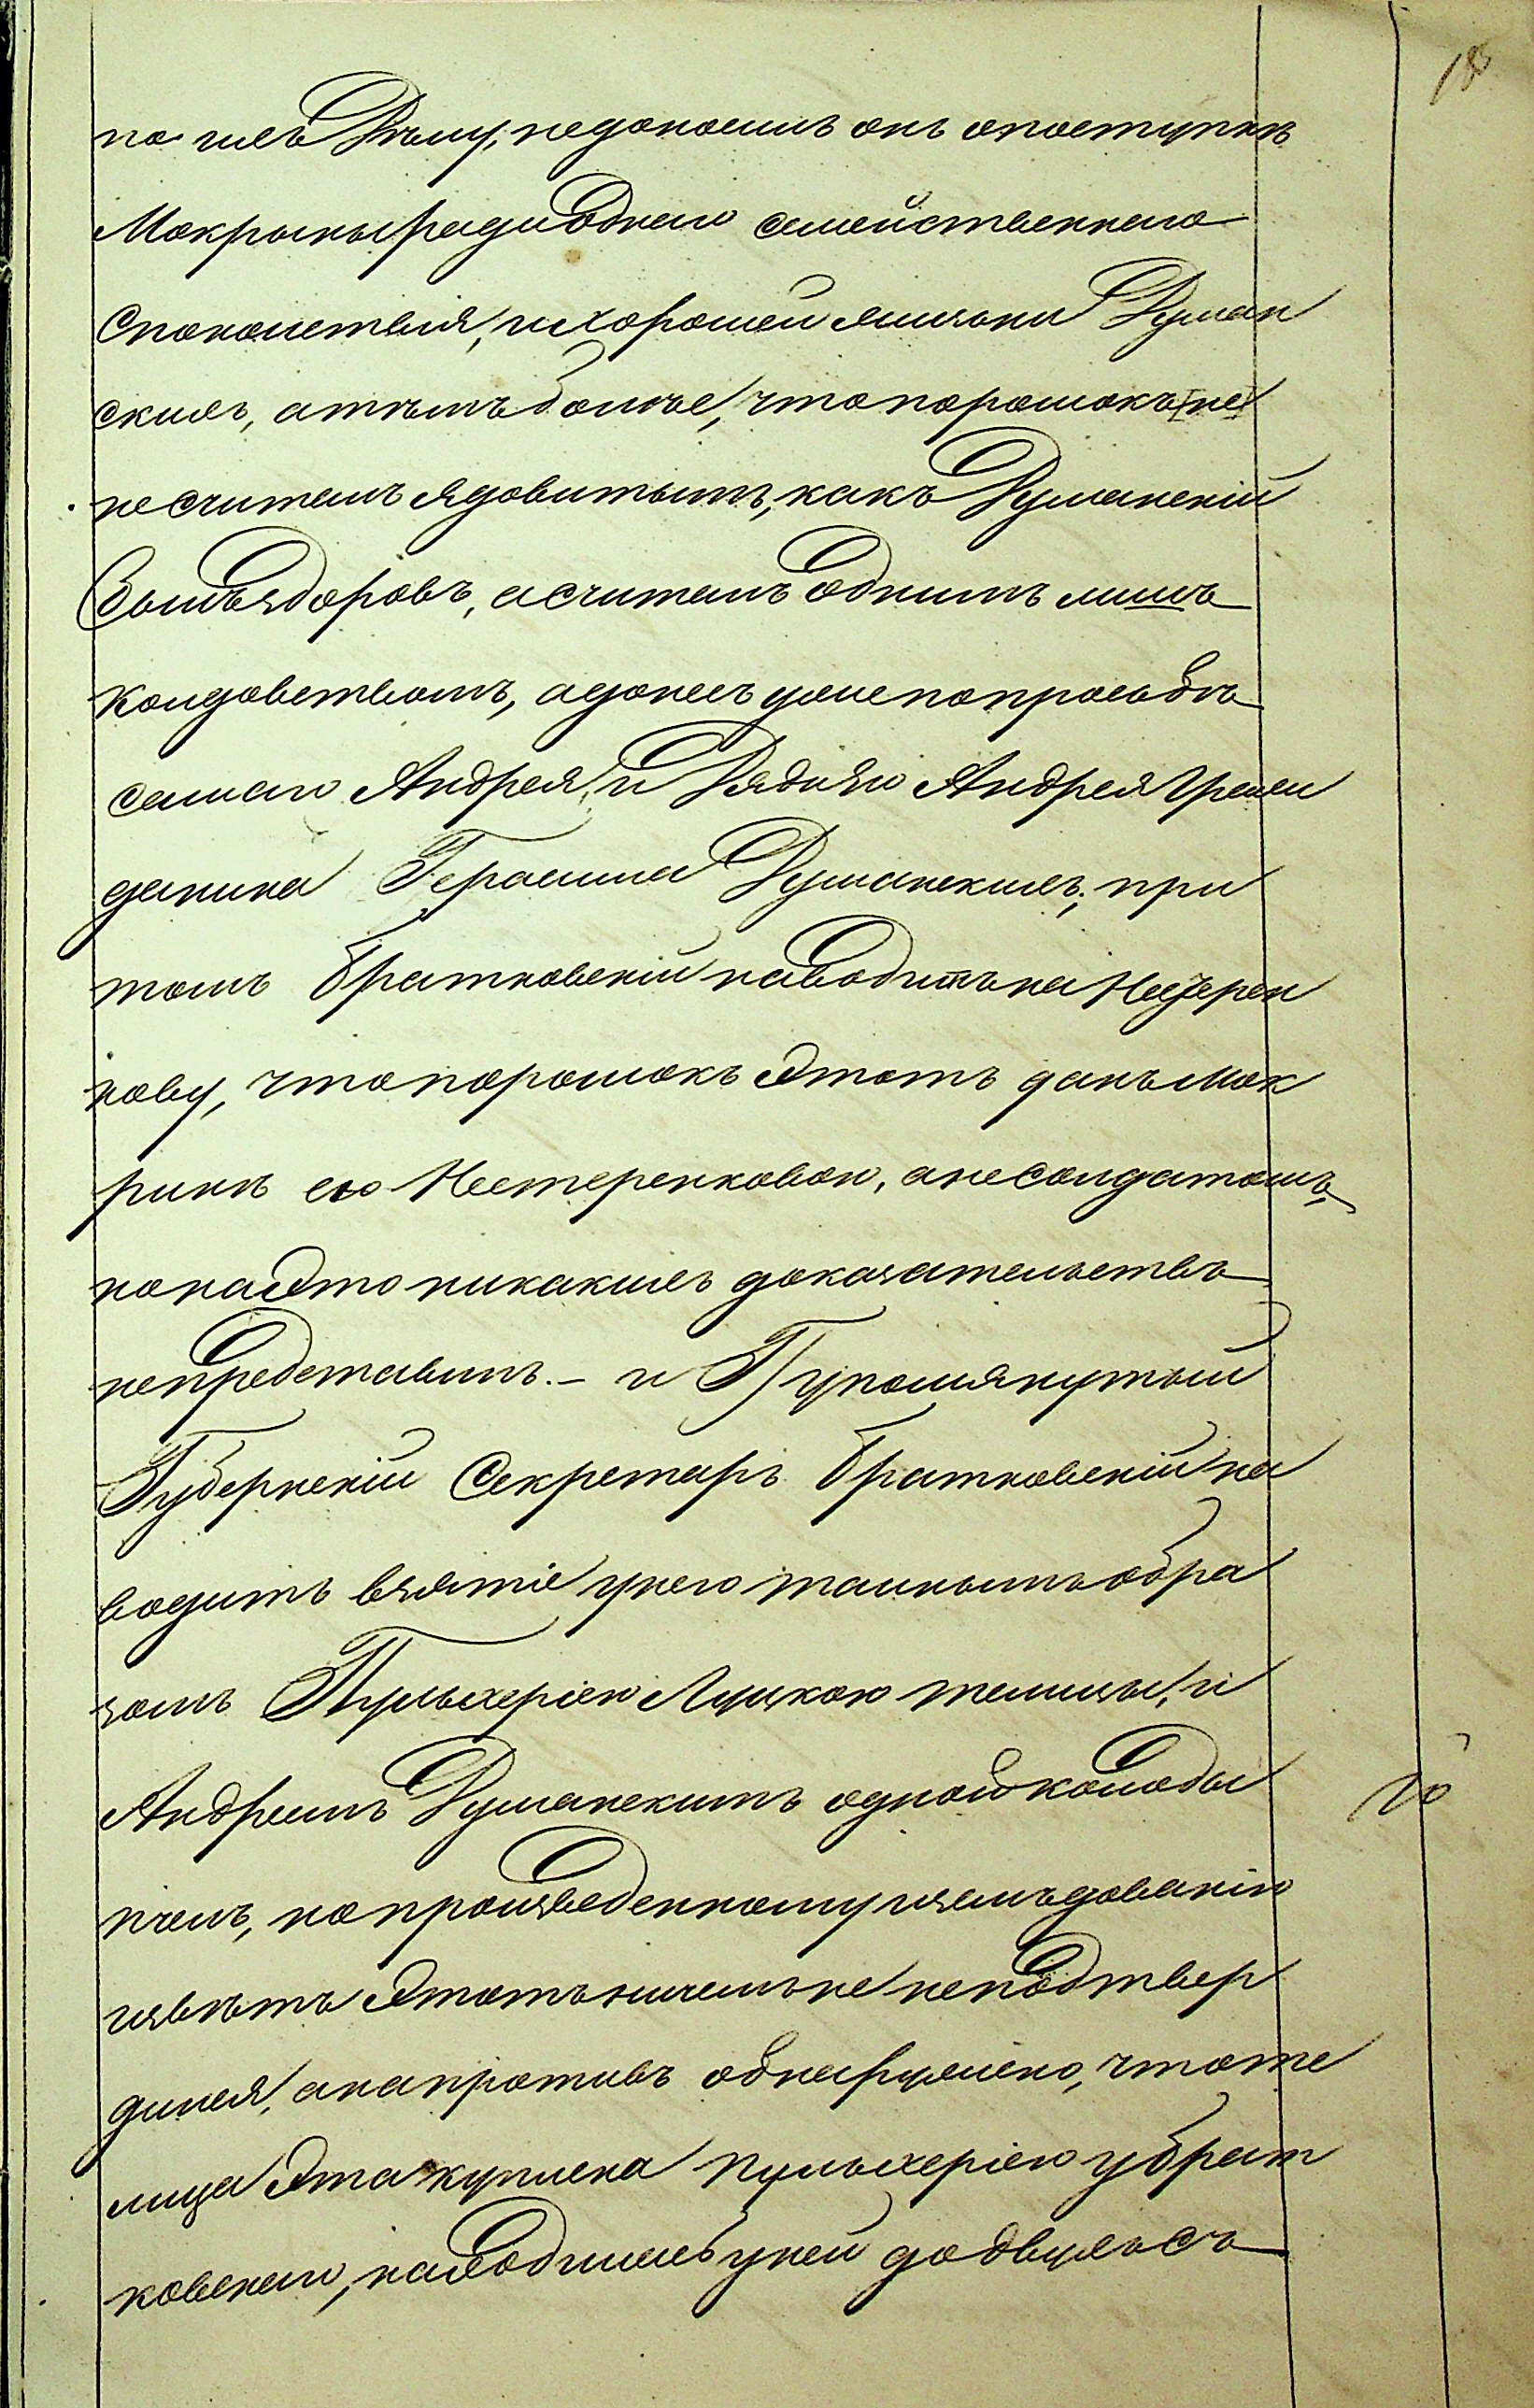 18
по чей Дому, недоносилъ онъ опоступкѣ
Мокрыны ради Однаго семейственнаго
Спокойствія, и хорошей жизни Думан
скихъ, а тѣмъ болѣе, что порошокъ [не]
не считалъ ядовитымъ, какъ Думанскій
былъ здоровъ, а считалъ Однимъ лишь
колдовствомъ, а донесъ уже по просьбѣ
самаго Андрея, и Дядьѣю Андрея Граж
данина Герасима Думанскихъ; при
томъ Братковскій наводитъ на Нестерен
кову, что порошокъ Этотъ данъ Мок
ринѣ ею Нестеренковою, а не Солдатомъ,
но на Это никакихъ доказательствъ
не представилъ. – и Г) упомянутый
Губернскій Секретарь Братковскій на
водитъ взятіе у него тайнымъ обра
зомъ Пульхеріею Луцкою телицы, и
Андреемъ Думанскимъ одной колоды
пчелъ, но произведенному изслѣдованію
извѣтъ Этотъ ничемъ не неподтвер
дился, а напротивъ обнаружено, что те
лица Эта куплена Пульхеріею у Брат
ковскаго, находилась у ней до двухъ съ